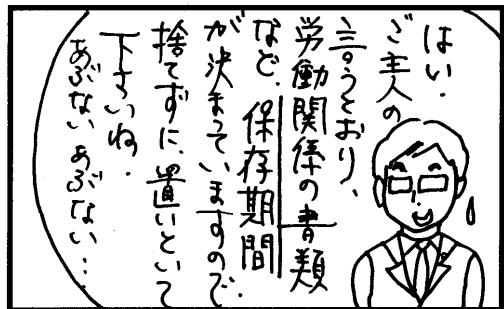 はい.
ご主人の
言うとおり、
労働関係の書類
など、保存期間
が決まっていますので.
捨てずに、置いといて
下さいね.
あぶない あぶない…